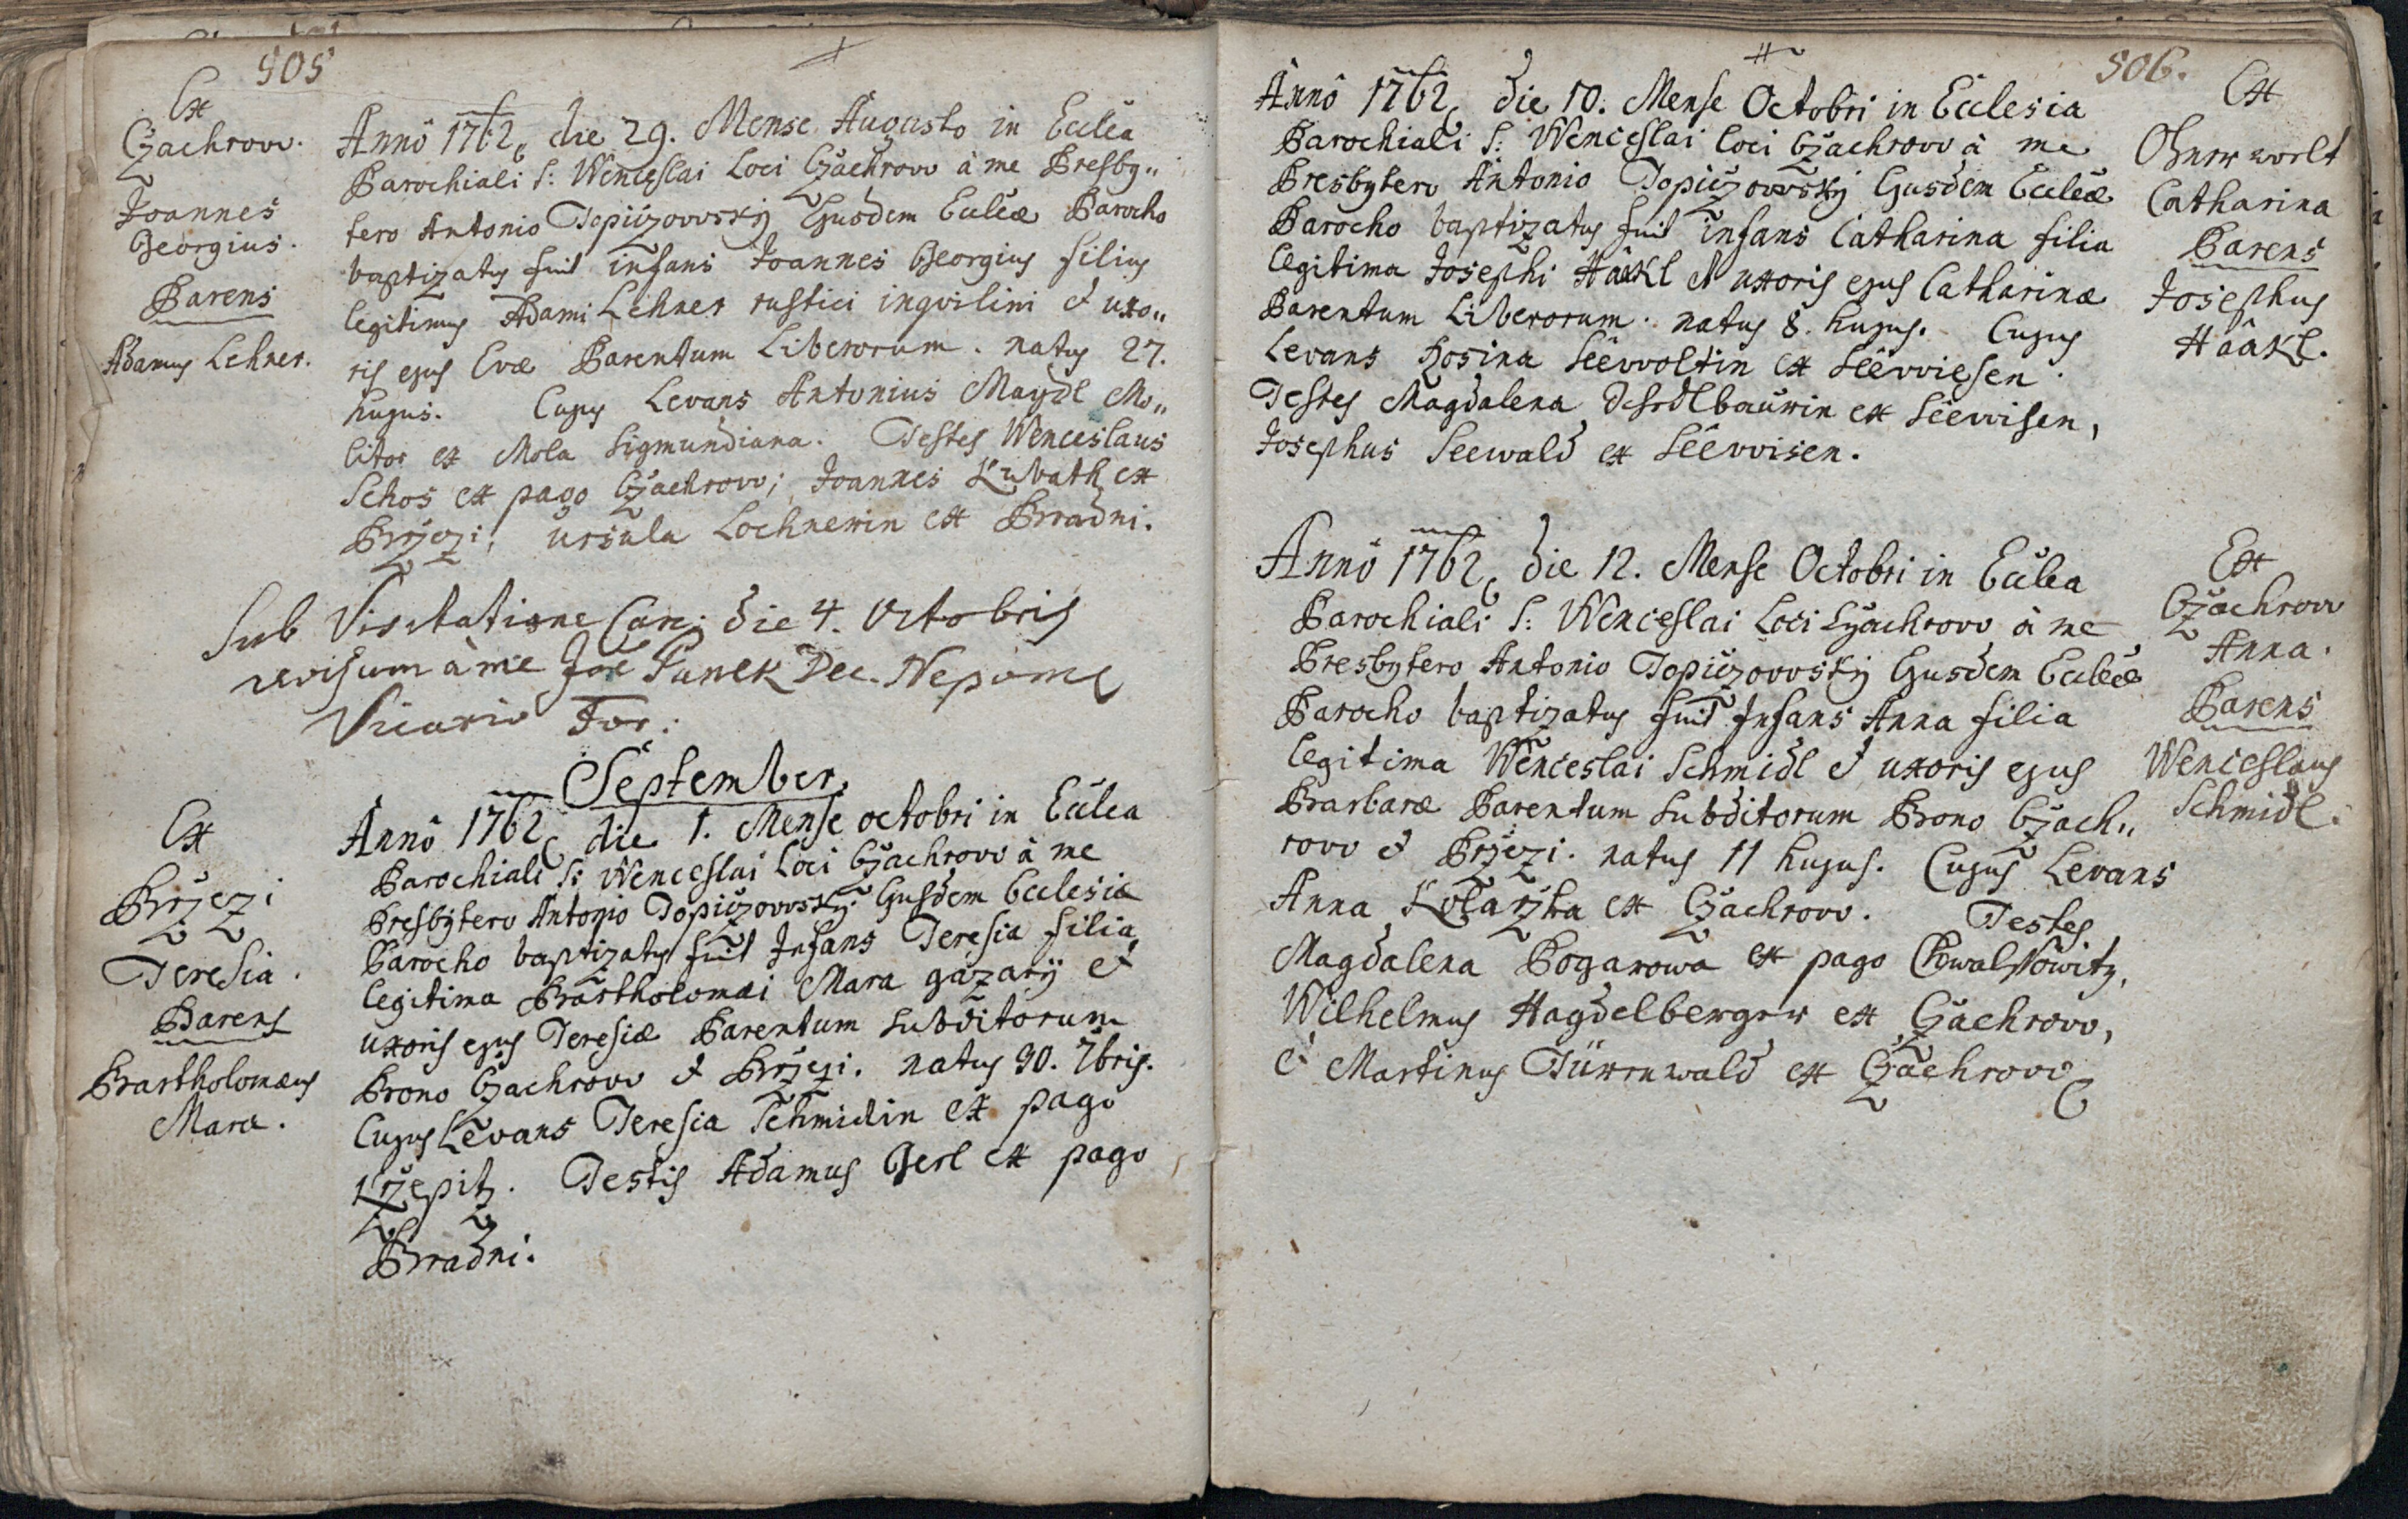 505
Ex
Czachrow.
Joannes
Georgius.
Parens
Adamus Lehner.
Anno 1762, die 29. Mense Augusto in Ecclea
Parochiali S: Wenceslai Loci Czachrow à me Presby„
tero Antonio Topiczowský Ejusdem Eccleæ Parocho
baptizatus fuit infans Joannes Georgius filius
legitimus Adami Lehner rustici inqvilini et uxo„
ris ejus Evæ Parentum Liberorum. natus 27.
hujus. Cujus Levans Antonius Maydl Mo„
litor ex Mola Sigmundiana. Testes Wenceslaus
Schos ex pago Czachrow; Joannes Kubath ex
Brzezi; Ursula Lochnerin ex Bradni.
Sub Visitatione Can: die 4. Octobris
revisum à me Jos Punek Dec. Nepom
Vicario For:
September.
Ex
Brzezi
Teresia.
Parens
Bartholomæus
Mara.
Anno 1762, die 1. Mense octobri in Ecclea
Parochiali S: Wenceslai Loci Czachrow à me
Presbytero Antonio Topiczowský Ejusdem Ecclesiæ
Parocho baptizatus fuit Infans Teresia filia
legitima Bartholomæi Mara gazarij et
uxoris ejus Teresiæ Parentum Subditorum
Brono Czachrow et Brzezi. natus 30. 7bris.
Cujus Levans Teresia Schmidin ex pago
Krzepitz. Testis Adamus Gerl ex pago
Bradni.
506.
Anno 1762, die 10. Mense Octobri in Ecclesia
Parochiali S: Wenceslai loci Czachrow à me
Presbytero Antonio Topiczowský Ejusdem Eccleæ
Parocho baptizatus fuit infans Catharina filia
legitima Josephi Häkl et uxoris ejus Catharinæ
Parentum Liberorum. natus 8. hujus. Cujus
Levans Rosina Seewoltin ex Seewiesen.
Testes Magdalena ex Seewisen,
Josephus Seewald ex Seewisen.
Ex
Catharina
Parens
Josephus
Hääkl.
Anno 1762, die 12. Mense Octobri in Ecclea
Parochiali S: Wenceslai Loci Czachrow à me
Presbytero Antonio Topiczowský Ejusdem Eccleæ
Parocho baptizatus fuit Infans Anna filia
legitima Wenceslai Schmidl et uxoris ejus
Barbaræ Parentum Subditorum Brono Czach„
row et Brzezi. natus 11 hujus. Cujus Levans
Anna Kolarzka ex Czachrow. Testes
Magdalena Pogarowa ex pago Chwalschowitz,
Wilhelmus Hagdelberger ex Czachrow,
et Martinus Türrnwald ex Czachrow
Ex
Czachrow
Anna.
Parens
Wenceslaus
Schmidl.